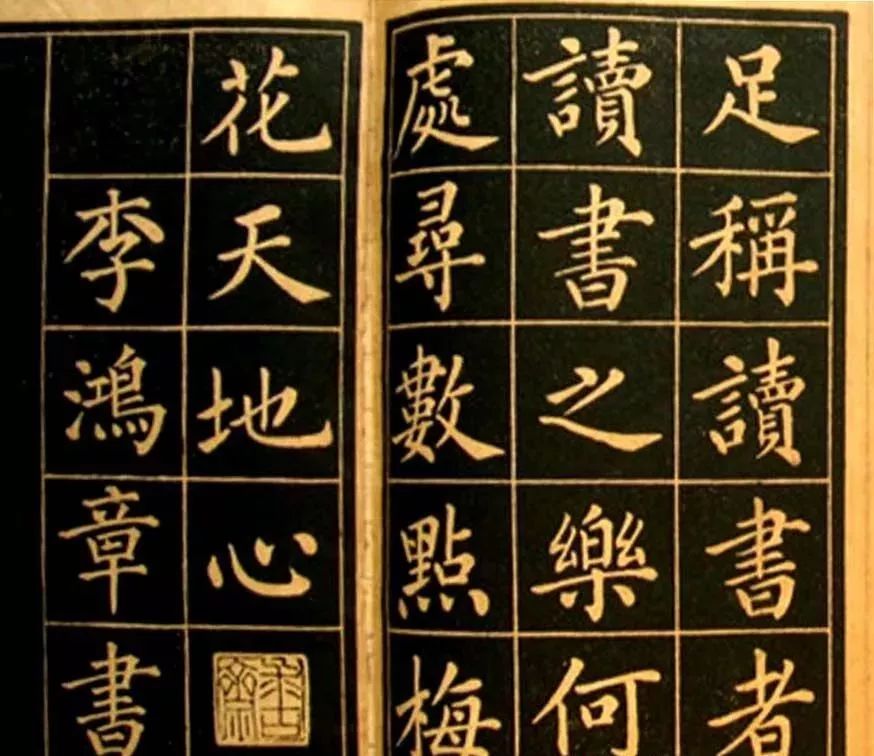 足稱讀書者
讀書之樂何
處尋數點梅
花天地心
李鴻章書